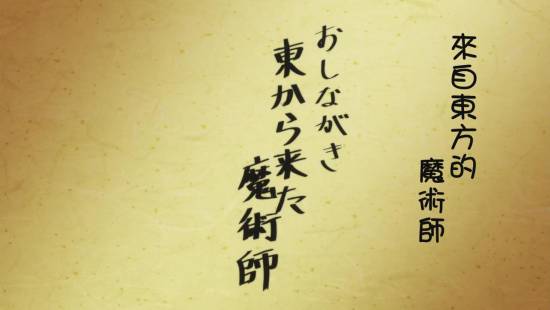 來自東方的
魔術師
おしながき
東から来た
魔術師